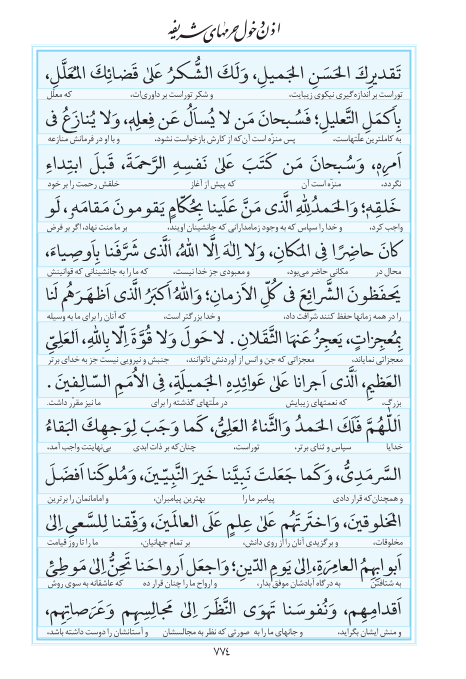 اذن دخول حرمهای شریفه
تَقديرِكَ الحَسَنِ الجَميلِ، وَلَكَ الشُّكرُ عَلىٰ قَضائِكَ المُعَلَّلِ،
توراست بر اندازه‌گیری نیکوی زیبایت، و شکر توراست بر داوری‌ات، که معلّل
بِاَكمَلِ التَّعليلِ؛ فَسُبحانَ مَن لا يُسأَلُ عَن فِعلِهِ، وَلا يُنازَعُ فى
به کاملترین علّتهاست، پس منزّه است آن‌که از کارش بازخواست نشود، و با او در فرمانش منازعه
اَمرِهِ، وَسُبحانَ مَن كَتَبَ عَلىٰ نَفسِهِ الرَّحمَةَ، قَبلَ ابتِداءِ
نگردد، منزّه است آن که پیش از آغاز خلقش رحمت را بر خود
خَلقِهِ؛ وَالحَمدُ لِلّٰهِ الَّذى مَنَّ عَلَينا بِحُكّامٍ يَقومونَ مَقامَهُ، لَو
واجب کرد، و خدا را سپاس که به وجود زمامدارانی که جانشینان اویند، بر ما منت نهاد، اگر بر فرض
كانَ حاضِرًا فِى المَكانِ، وَلا اِلٰهَ اِلَّا اللّٰهُ، الَّذى شَرَّفَنا بِاَوصِياءَ،
محال در مکانی حاضر می‌بود، و معبودی جز خدا نیست، که ما را به جانشینانی که قوانینش
يَحفَظونَ الشَّرائِعَ فى كُلِّ الاَزمانِ؛ وَاللّٰهُ اَكبَرُ الَّذى اَظهَرَهُم لَنا
را در همه زمانها حفظ کنند شرافت داد، و خدا بزرگتر است، که آنان را برای ما به وسیله
بِمُعجِزاتٍ، يَعجِزُ عَنهَا الثَّقَلانِ . لا حَولَ وَلا قُوَّةَ اِلّا بِاللّٰهِ، العَلِىِّ
معجزاتی نمایاند، معجزاتی که جن و انس از آوردنش ناتوانند، جنبش و نیرویی نیست جز به خدای برتر
العَظيمِ، الَّذى اَجرانا عَلىٰ عَوائِدِهِ الجَميلَةِ، فِى الاُمَمِ السّالِفينَ .
بزرگ، که نعمتهای زیبایش در ملّتهای گذشته را برای ما نیز مقرّر داشت.
اَللّٰهُمَّ فَلَكَ الحَمدُ وَالثَّناءُ العَلِىُّ، كَما وَجَبَ لِوَجهِكَ البَقاءُ
خدایا سپاس و ثنای برتر، توراست، چنان‌که بر ذات ابدی بی‌نهایتت واجب آمد،
السَّرمَدِىُّ، وَكَما جَعَلتَ نَبِيَّنا خَيرَ النَّبِيّينَ، وَمُلوكَنا اَفضَلَ
و همچنان‌که قرار دادی پیامبر ما را بهترین پیامبران، و امامانمان را برترین
المَخلوقينَ، وَاختَرتَهُم عَلىٰ عِلمٍ عَلَى العالَمينَ، وَفِّقنا لِلسَّعىِ اِلىٰ
مخلوقات، و برگزیدی آنان را از روی دانش، بر تمام جهانیان، ما را تا روز قیامت
اَبوابِهِمُ العامِرَةِ، اِلىٰ يَومِ الدّينِ؛ وَاجعَل اَرواحَنا تَحِنُّ اِلىٰ مَوطِئِ
به شتافتن به درگاه آبادشان موفق بدار، و ارواح ما را چنان قرار ده که عاشقانه به سوی روش
اَقدامِهِم، وَنُفوسَنا تَهوَى النَّظَرَ اِلىٰ مَجالِسِهِم وَعَرَصاتِهِم،
و منش ایشان بگراید، و جانهای ما را به صورتی که نظر به مجالسشان و آستانشان را دوست داشته باشد،
٧٧٤